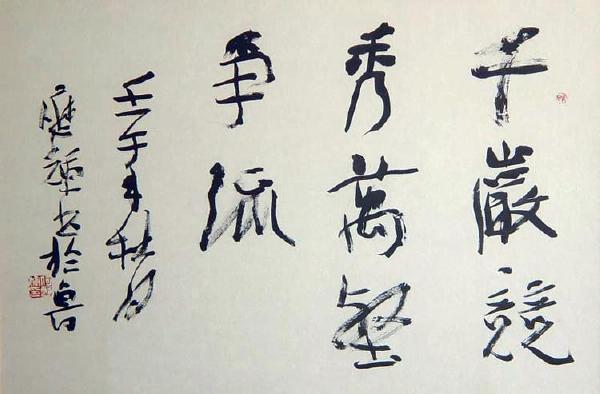 千巖競
秀萬壑
爭流
壬午年秋月
書於魯